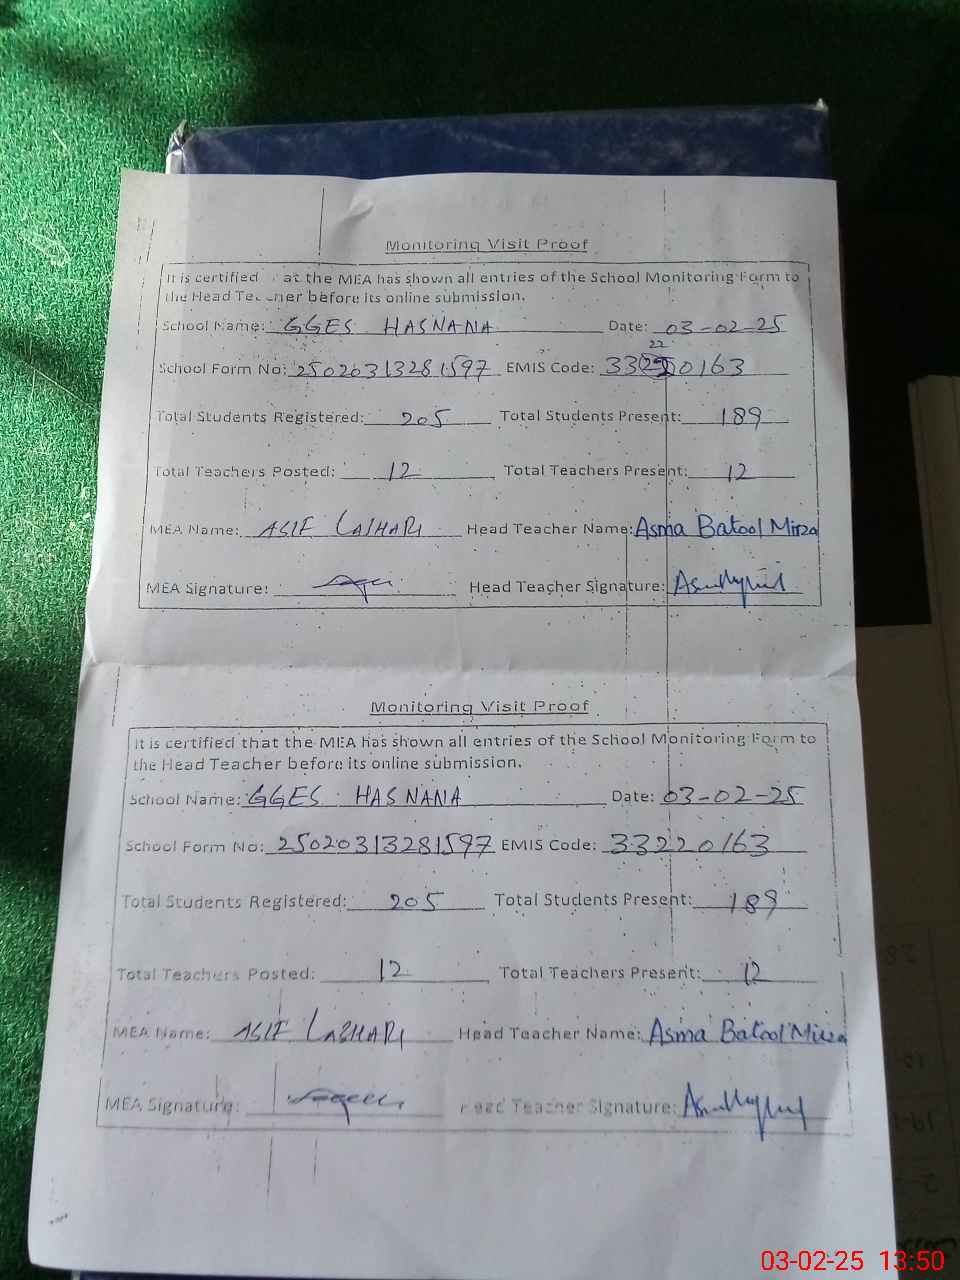 Monitoring Visit Proof
It is certified at the MEA has shown all entries of the School Monitoring Form to
the Head Teacher before its online submission.
School Name: GGES HASNANA Date: 03-02-25
22
School Form No: 25020313281597 EMIS Code: 33220163
Total Students Registered: 205 Total Students Present: 189
Total Teachers Posted: 12 Total Teachers Present: 12
MEA Name: ASIF LASHARI Head Teacher Name: Asma Batool Mirza
MEA Signature: Head Teacher Signature:
Monitoring Visit Proof
It is certified that the MEA has shown all entries of the School Monitoring Form to
the Head Teacher before its online submission.
School Name: GGES HASNANA Date: 03-02-25
School Form No: 25020313281597 EMIS Code: 33220163
Total Students Registered: 205 Total Students Present: 189
Total Teachers Posted: 12 Total Teachers Present: 12
MEA Name: ASIF LASHARI Head Teacher Name: Asma Batool Mirza
MEA Signature: Head Teacher Signature:
03-02-25 13:50